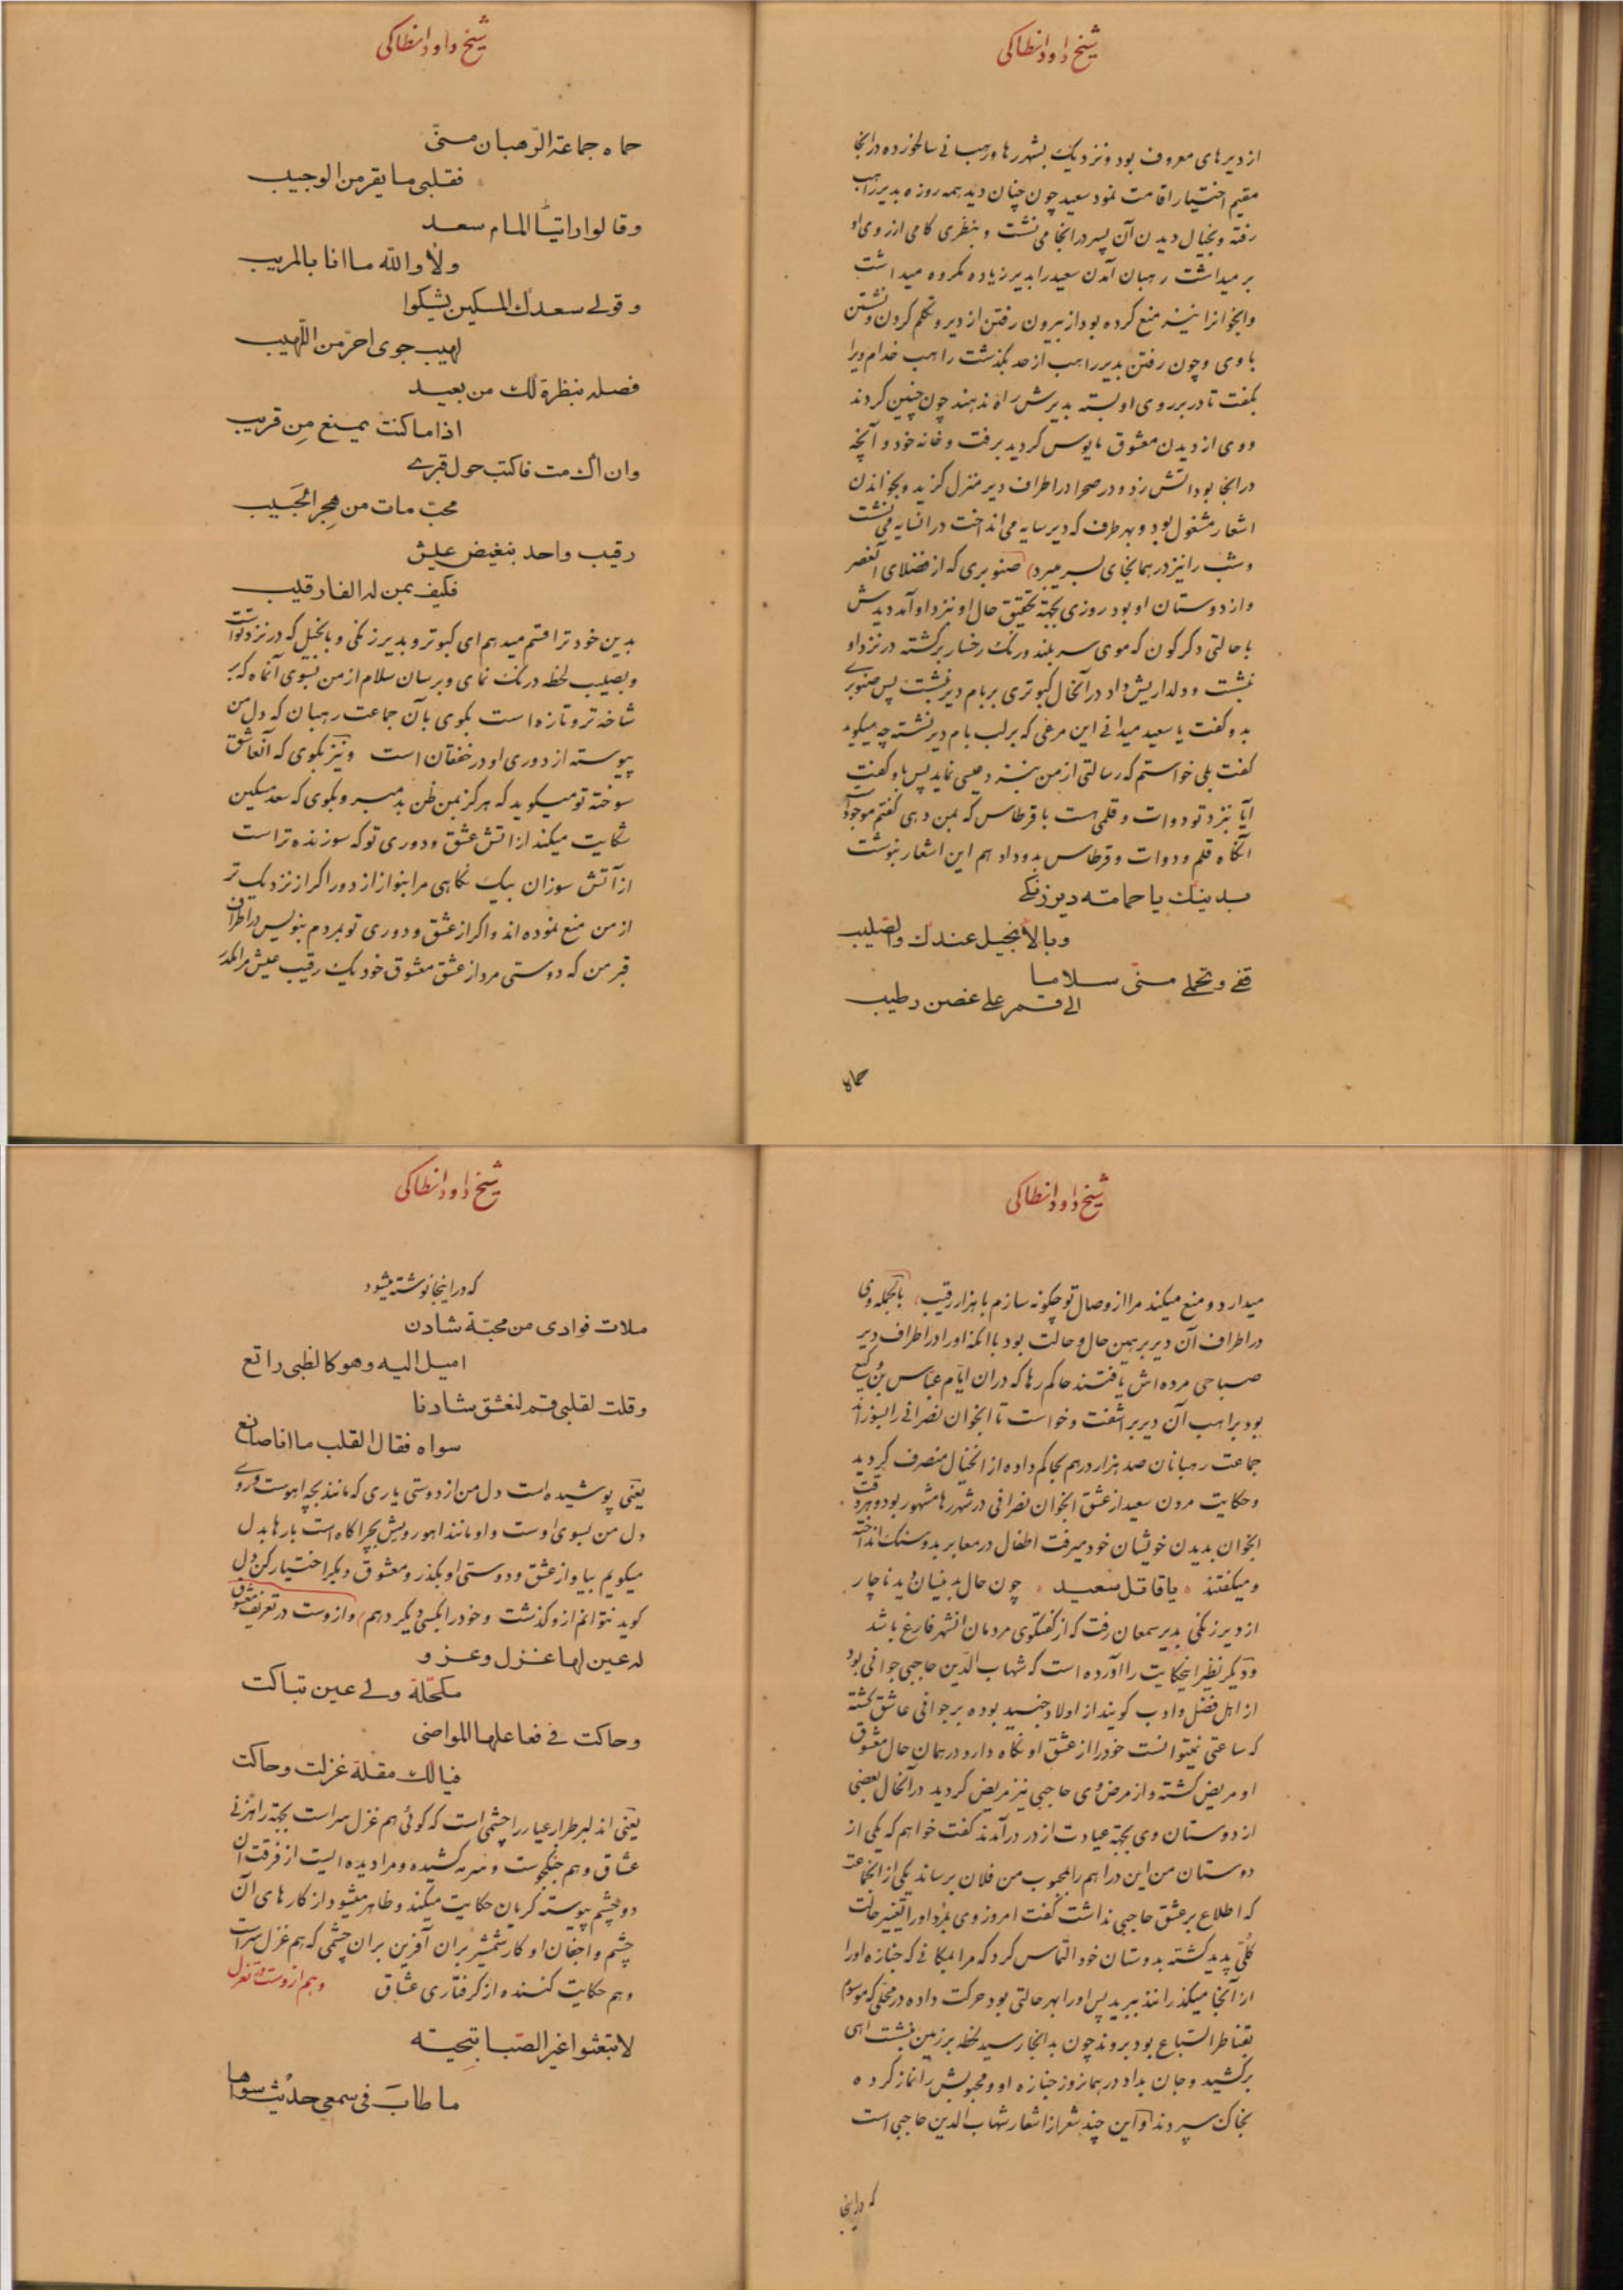 شیخ داود انطاکی
از دیرهای معروف بود و نزدیک بشهر رها و رهبانی سالخورده در آنجا
مقیم اختیار اقامت نمود سعید چون چنان دید همه روزه بدیر راهب
رفته و بخیال دیدن آن پسر در آنجا می نشست و بنظری کامی از روی او
بر میداشت رهبان آمدن سعید را بدیر زیاده مکروه میداشت
و آنجوانرا نیز منع کرده بود از بیرون رفتن از دیر و تکلم کردن و نشستن
با وی و چون رفتن بدیر راهب از حد بگذشت راهب خدام ویرا
بگفت تا در بر روی او بسته بدیرش راه ندهند چون چنین کردند
و وی از دیدن معشوق مایوس گردید برفت و خانه خود و آنچه
در آنجا بود اتش زد و در صحرا در اطراف دیر منزل گزید و بخواندن
اشعار مشغول بود و بهر طرف که دیر سایه می انداخت در انسایه می نشست
و شب را نیز در همانجای بسر میبرد صنوبری که از فضلای آنعصر
و از دوستان او بود روزی بجهة تحقیق حال او نزد او آمد دیدش
با حالتی دگرگون که موی سر بلند و رنگ رخسار برگشته در نزد او
نشست و دلداریش داد در آنحال کبوتری بر بام دیر نشست پس صنوبری
بدو گفت یا سعید میدانی این مرغی که بر لب بام دیر نشسته چه میگوید
گفت بلی خواستم که رسالتی از من پس باو گفت
آیا نزد تو دوات و قلمی هست با قرطاس که بمن دهی گفتم موجود است
آنگاه قلم و دوات و قرطاس بدو دادم این اشعار بنوشت
بدینك یا حمامته دیر زنکی
و بالأنجیل عندك والصلیب
قفی و تحملی منی سلاما
الی قمر علی غصن رطیب
حماه
شیخ داود انطاکی
حماه جماعة الرهبان منی
فقلبی ما یقر من الوجیب
وقالوا راتبنا المام سعد
ولا والله ما انا بالمریب
وقولی سعدك المسکین یشکوا
لهیب جوی احر من اللهیب
فصله بنظرة لك من بعید
اذا ما کنت یمنع من قریب
وان اك مت فاکتب حول قبری
محب مات من هجر الحبیب
رقیب واحد بنغیض عیش
فکیف بمن له الفا رقیب
بدین خود ترا قسم میدهم ای کبوتر و بدیر زنکی و بانجیل که در نزد تواست
و بصلیب لحظه درنگ نمای و برسان سلام از من بسوی آنماه که بر
شاخه تر و تازه است بگوی بآن جماعت رهبان که دل من
پیوسته از دوری او در خفقان است و نیز بگوی که آنعاشق
سوخته تو میگوید که هرگز بمن ظن بد مبر و بگوی که سعد مسکین
شکایت میکند از اتش عشق و دوری تو که سوزنده تر است
از آتش سوزان بیک نگاهی مرا بنواز از دور اگر از نزدیک تر
از من منع نموده اند و اگر از عشق و دوری تو بمردم بنویس در اطراف
قبر من که دوستی مرد از عشق معشوق خود یک رقیب عیش مرا مکدر
شیخ داود انطاکی
میدارد و منع میکند مرا از وصال تو چگونه سازم با هزار رقیب بالجمله وی
در اطراف آن دیر بر همین حال و حالت بود تا انکه او را در اطراف دیر
صباحی مرده اش یافتند حاکم رها که دران ایام عباس بن کیغ
بود براهب آن دیر بر آشفت و خواست تا آنجوان نصرانی را بسوزاند
جماعت رهبانان صد هزار درهم بحاکم داده از انخیال منصرف گردید
و حکایت مردن سعید از عشق انجوان نصرانی در شهر رها مشهور بود و هر وقت
انجوان بدیدن خویشان خود میرفت اطفال در معابر بدو سنگ انداخته
و میگفتند یا قاتل سعید چون حال بدینسان دید ناچار
از دیر زنکی بدیر سمعان رفت که از گفتگوی مردمان انشهر فارغ باشد
و دیگر نظیر اینحکایت را آورده است که شهاب الدین حاجبی جوانی بود
از اهل فضل و ادب گویند از اولاد جنید بوده بر جوانی عاشق گشته
که ساعتی نمیتوانست خود را از عشق او نگاه دارد در همان حال معشوق
او مریض گشته و از مرض وی حاجبی نیز مریض گردید در آنحال بعضی
از دوستان وی بجهة عیادت از در در آمدند گفت خواهم که یکی از
دوستان من این دراهم را بمحبوب من فلان برساند یکی از انجماعت
که اطلاع بر عشق حاجبی نداشت گفت امروز وی بمرد او را تغییر حالت
کلی پدید گشته بدوستان خود التماس کرد که مرا بمکانی که جنازه او را
از آنجا میگذرانند ببرید پس او را بهر حالتی بود حرکت داده در محلی که موسوم
بقناطر السباع بود بروند چون بدانجا رسید لحظه بر زمین نشست آهی
برکشید و جان بداد در همانروز جنازه او و محبوبش را نماز کرده
بخاک سپردند و این چند شعر از اشعار شهاب الدین حاجبی است
که در اینجا
شیخ داود انطاکی
که در اینجا نوشته میشود
ملات فوادی من محبة شادن
امیل الیه و هو کالظبی راتع
وقلت لقلبی قم لنعشق شادنا
سواه فقال القلب ما انا صانع
یعنی پوشیده است دل من از دوستی یاری که مانند بچه اهوست و روی
دل من بسوی اوست و او مانند اهو رویش بچراگاه است بارها بدل
میگویم بیا و از عشق و دوستی او بگذر و معشوق دیگر اختیار کن دل
گوید نتوانم از و گذشت و خود را بکسی دیگر دهم و ازوست در تعریف معشوق
له عین لها غزل و غزو
مکحلة ولی عین تباکت
وحاکت فی فعاعلها المواضی
فیالك مقلة غزلت وحاکت
یعنی اندلبر طرار عیار را چشمی است که گوئی هم غزل سراست بجهة راهزنی
عشاق و هم جنگجوست و سرمه کشیده و مرا دیده ایست از فرقت آن
دو چشم پیوسته گریان حکایت میکند و ظاهر میشود از کارهای آن
چشم و اجفان او کار شمشیر بران آفرین بران چشمی که هم غزل سراست
و هم حکایت کننده از گرفتاری عشاق و هم ازوست در تغزل
لا تبعثوا غیر الصبا بتحیته
ما طاب فی سمعی حدیث سواها